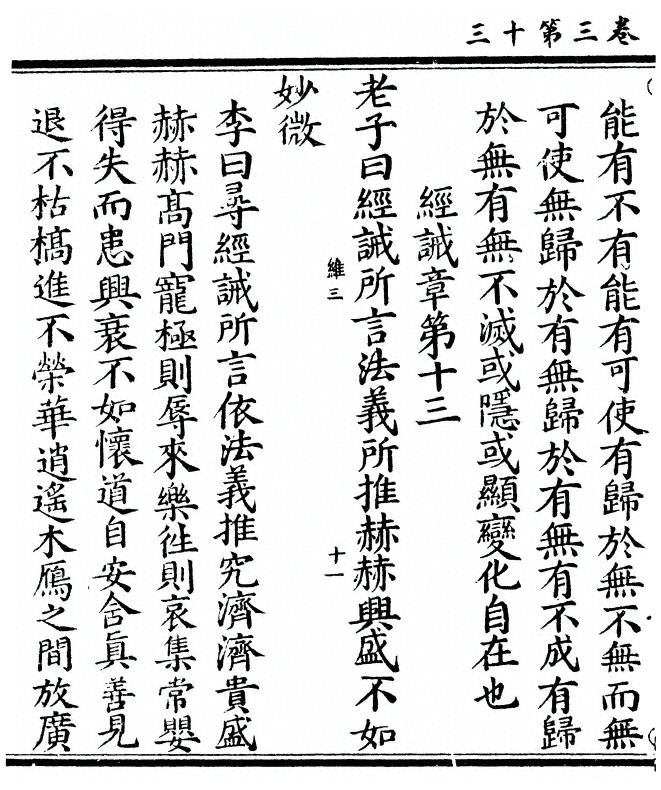 卷三第十三
能有不有能有可使有歸於無不無而無
可使無歸於有無歸於有無有不成有歸
於無有無不滅或隱或顯變化自在也
經誡章第十三
老子曰經誡所言法義所推赫赫興盛不如
維三
十一
妙微
李曰尋經誡所言依法義推究濟濟貴盛
赫赫高門寵極則辱來樂徃則哀集常嬰
得失而患興衰不如懷道自安含真善見
退不枯槁進不榮華逍遥木鴈之間放廣